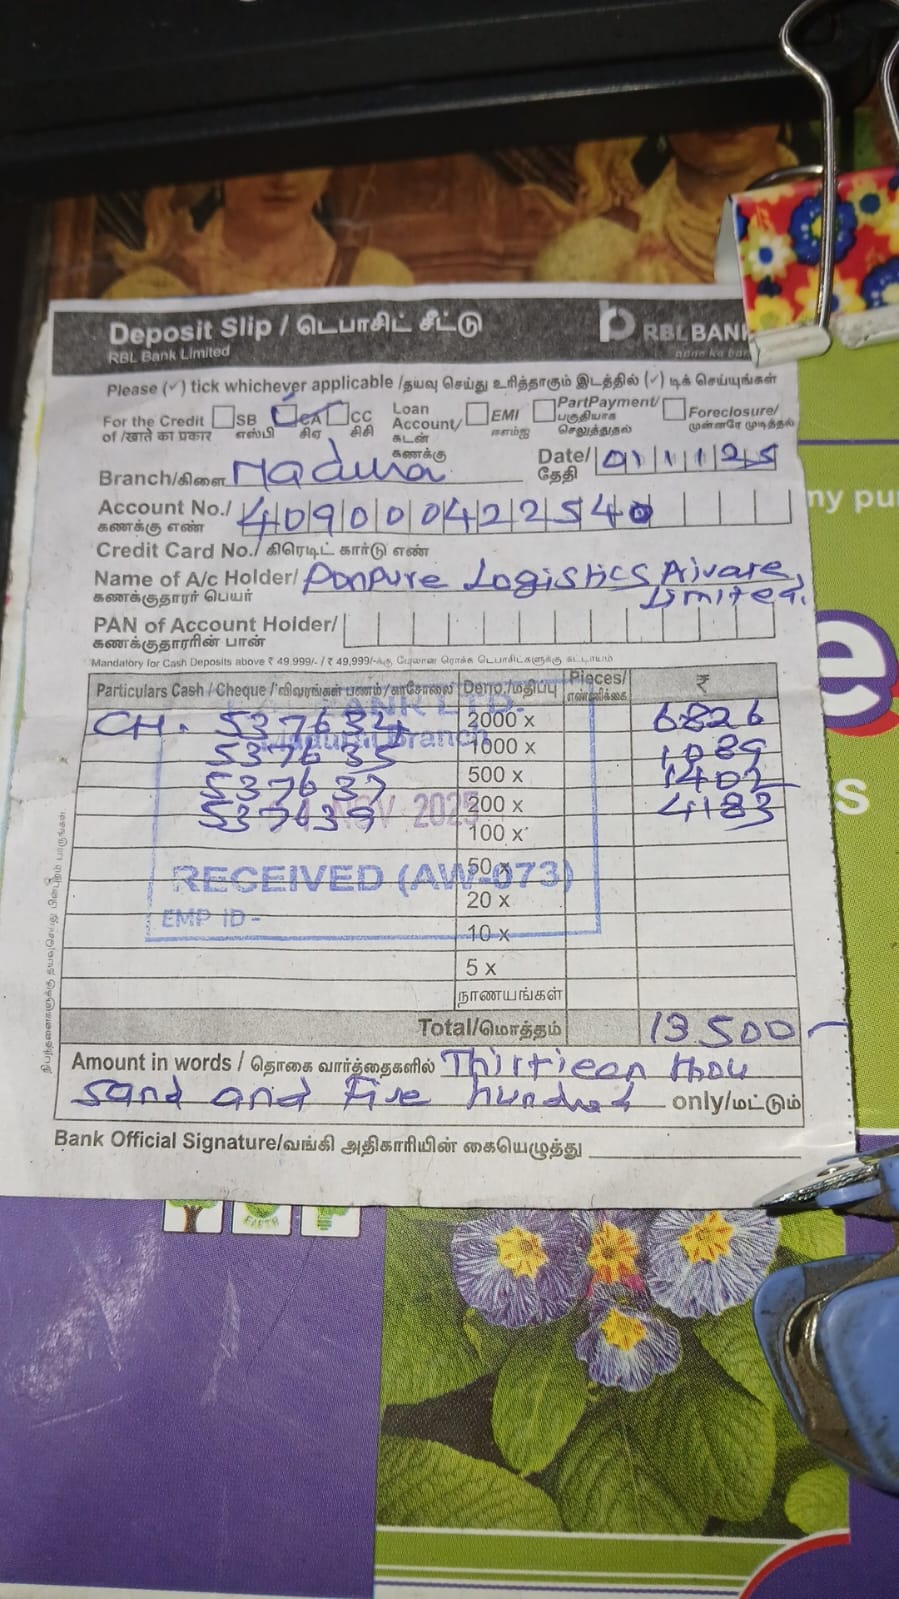 Deposit Slip / டெபாசிட் சீட்டு
RBL Bank Limited
RBL BANK
apno ka ban
Please (✓) tick whichever applicable /தயவு செய்து உரித்தாகும் இடத்தில் (✓) டிக் செய்யுங்கள்
For the Credit of /खाते का प्रकार
SB எஸ்பி
CA சிஏ
CC சிசி
Loan Account/ கடன் கணக்கு
EMI
PartPayment/ பகுதியாக செலுத்துதல்
Foreclosure/ முன்னரே முடித்தல்
Branch/கிளை Madurai
Date/ தேதி 01 11 25
Account No./ கணக்கு எண் 409000422540
Credit Card No./ கிரெடிட் கார்டு எண்
Name of A/c Holder/ கணக்குதாரர் பெயர் Ponpure Logistics Private Limited.
PAN of Account Holder/ கணக்குதாரரின் பான்
Mandatory for Cash Deposits above ₹ 49,999/- / ₹ 49,999/-க்கு மேலான ரொக்க டெபாசிட்களுக்கு கட்டாயம்
Particulars Cash / Cheque / விவரங்கள் பணம் / காசோலை Deno./மதிப்பு Pieces/ எண்ணிக்கை ₹
CH. 537634 2000 x 6826
537635 1000 x 1089
537637 500 x 1402
537639 200 x 4183
100 x
50 x
20 x
10 x
5 x
நாணயங்கள்
BANK LTD.
Madurai Branch
1 NOV 2025
RECEIVED (AW-073)
EMP ID -
Total/மொத்தம் 13500/-
Amount in words / தொகை வார்த்தைகளில் Thirtieen thou
sand and Five hundred only/மட்டும்
Bank Official Signature/வங்கி அதிகாரியின் கையெழுத்து
my pu
e
s
EARTH